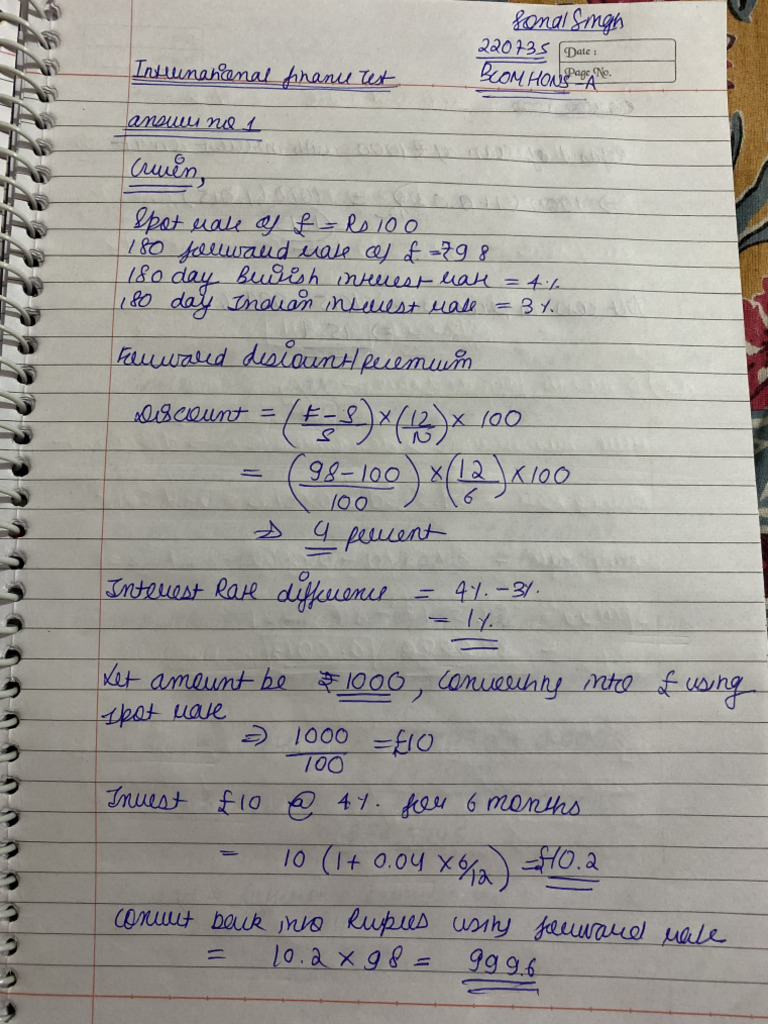 Sonal Singh
220735
Date :
Page No.
BCOM HONS-A
International finance Test
answer no 1
Given,
Spot rate of £ = Rs 100
180 forward rate of £ = ₹98
180 day British interest rate = 4%
180 day Indian interest rate = 3%
Forward discount/premium
Discount = (F-S/S) × (12/N) × 100
= (98-100/100) × (12/6) × 100
⇒ 4 percent
Interest Rate difference = 4% - 3%
= 1%
Let amount be ₹1000, converting into £ using
spot rate
⇒ 1000/100 = £10
Invest £10 @ 4% for 6 months
= 10 (1 + 0.04 × 6/12) = £10.2
Convert back into Rupees using forward rate
= 10.2 × 98 = 999.6